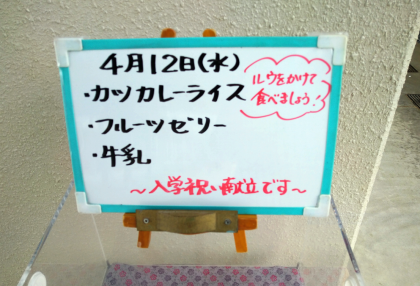 4月12日(水)
・カツカレーライス
ルウをかけて
食べましょう!
・フルーツゼリー
・牛乳
〜入学祝い献立です〜